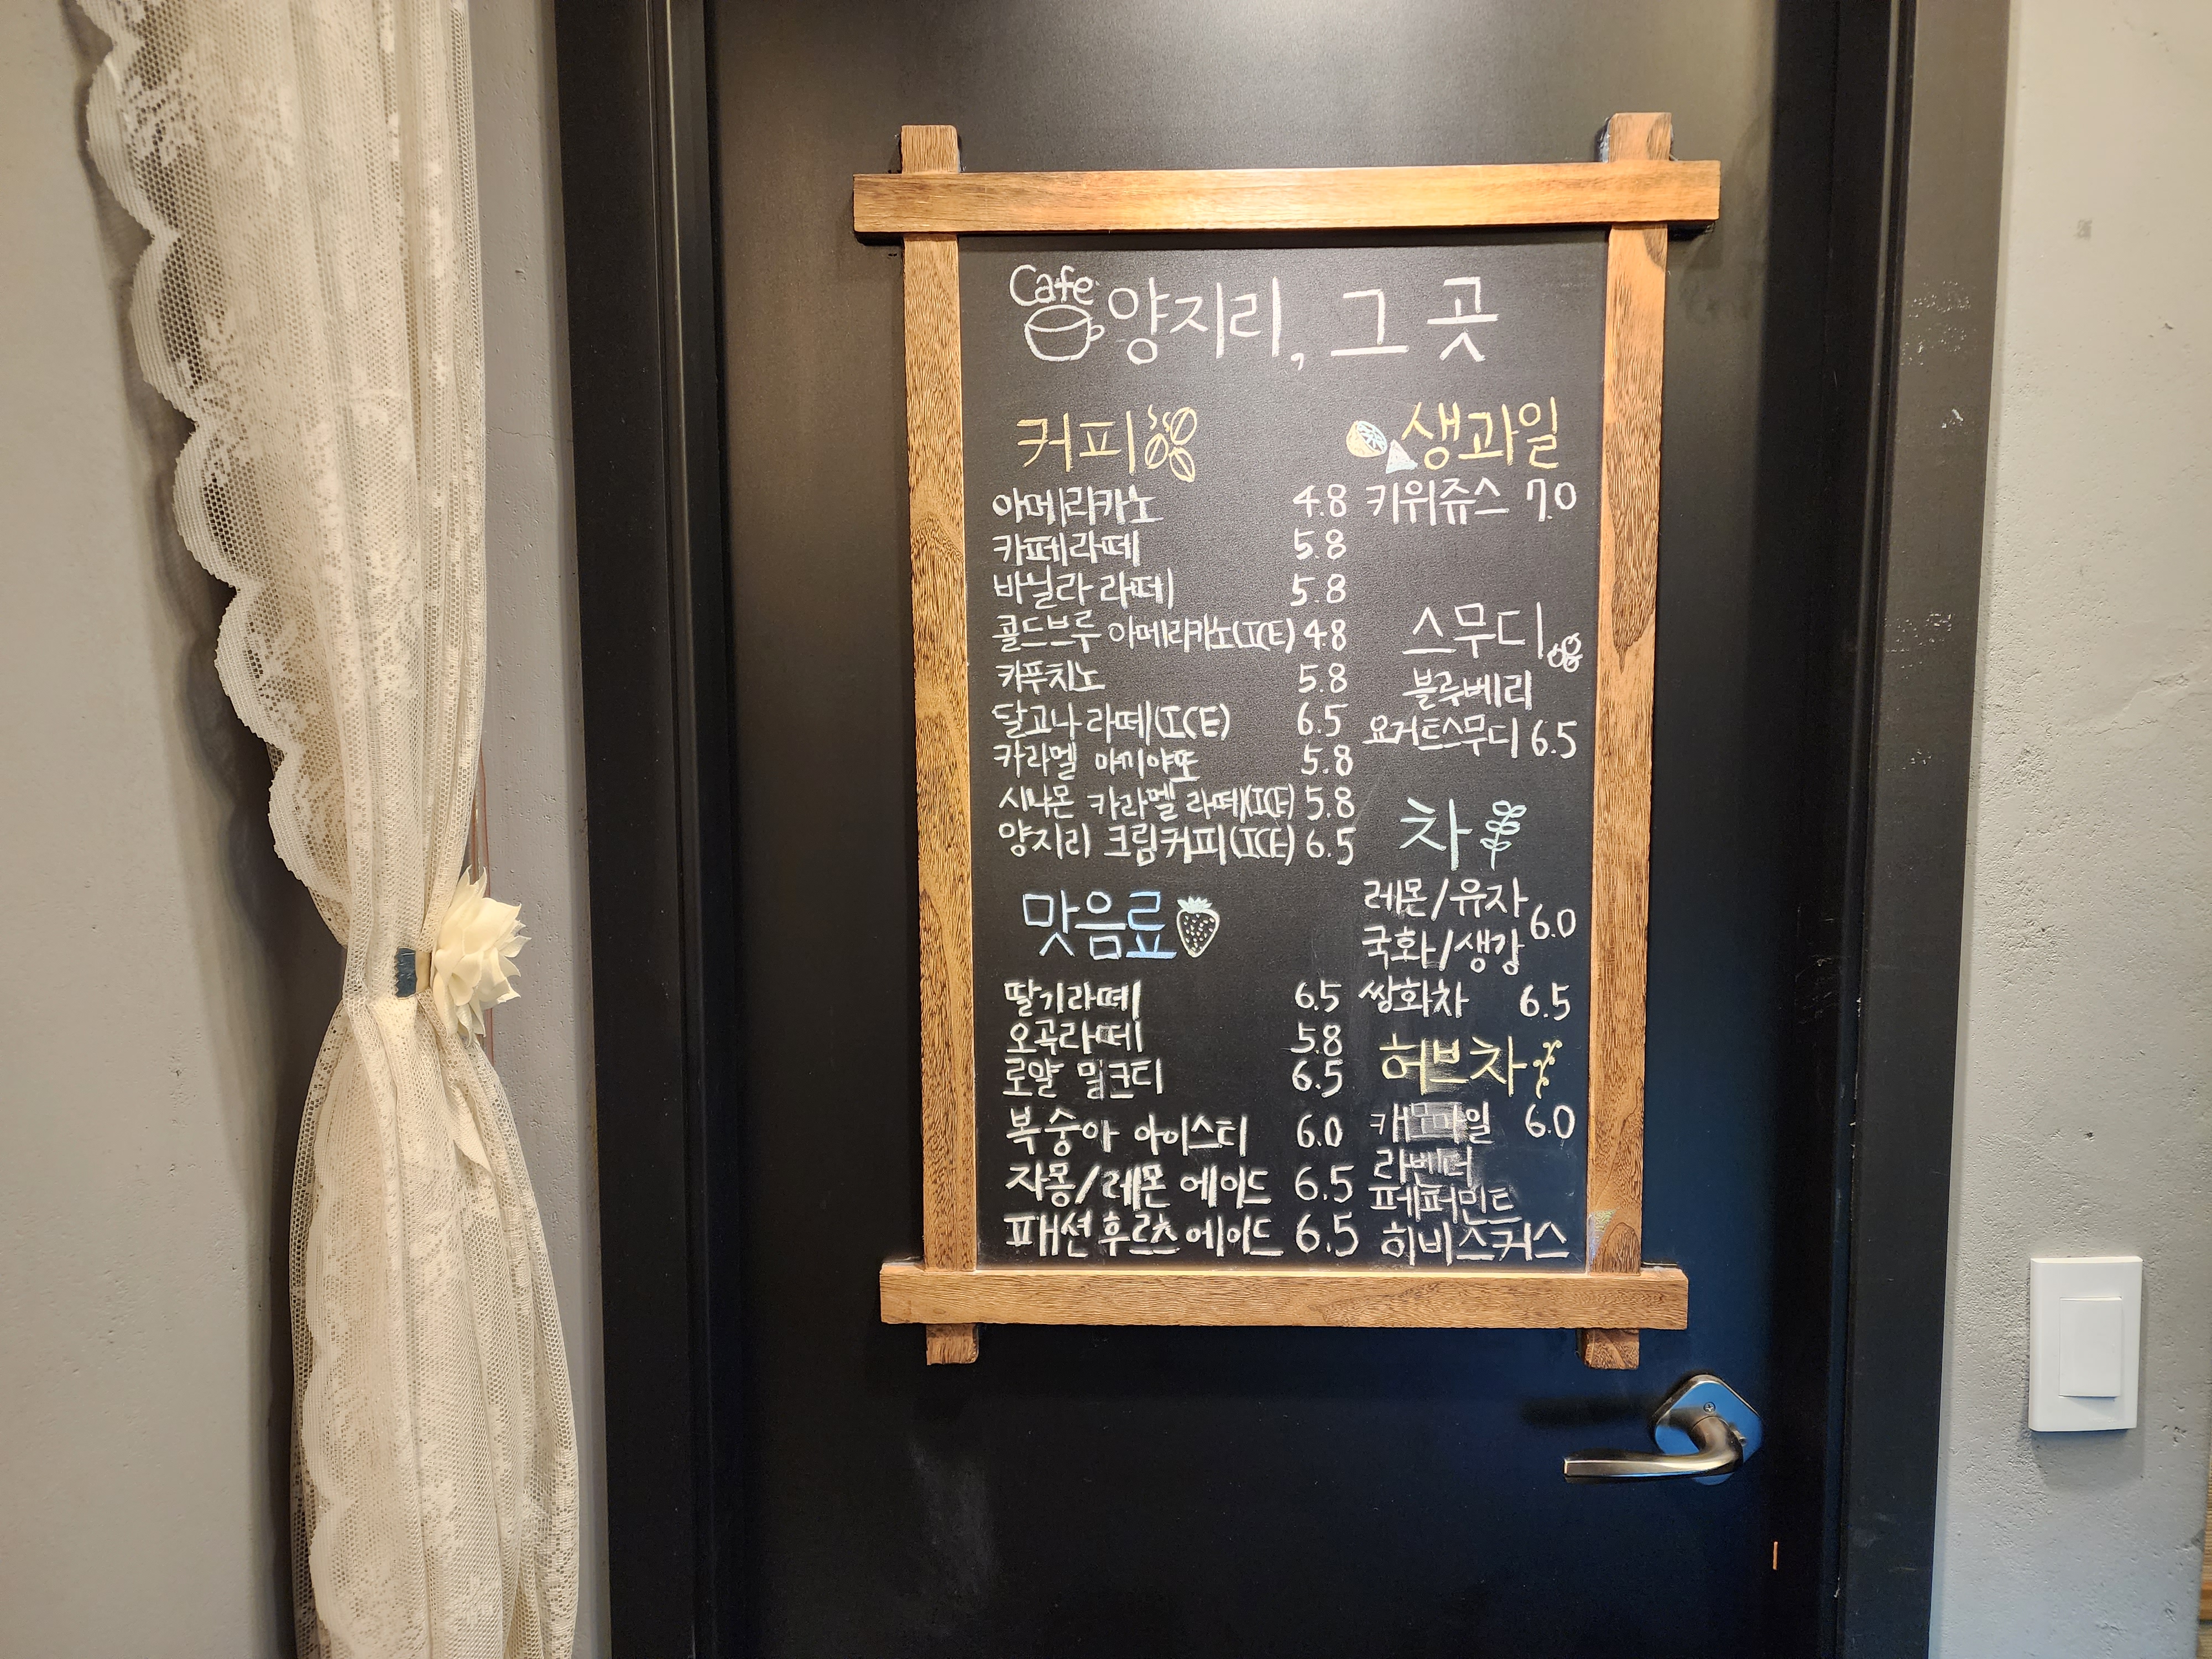 Cafe
양지리, 그 곳
커피
아메리카노 4.8
카페라떼 5.8
바닐라 라떼 5.8
콜드브루 아메리카노(ICE) 4.8
카푸치노 5.8
달고나 라떼(ICE) 6.5
카라멜 마끼야또 5.8
시나몬 카라멜 라떼(ICE) 5.8
양지리 크림커피(ICE) 6.5
맛음료
딸기라떼 6.5
오곡라떼 5.8
로얄 밀크티 6.5
복숭아 아이스티 6.0
자몽/레몬 에이드 6.5
패션후르츠 에이드 6.5
생과일
키위쥬스 7.0
스무디
블루베리
요거트스무디 6.5
차
레몬/유자
국화/생강 6.0
쌍화차 6.5
허브차
캐모마일 6.0
라벤더
페퍼민트
히비스커스